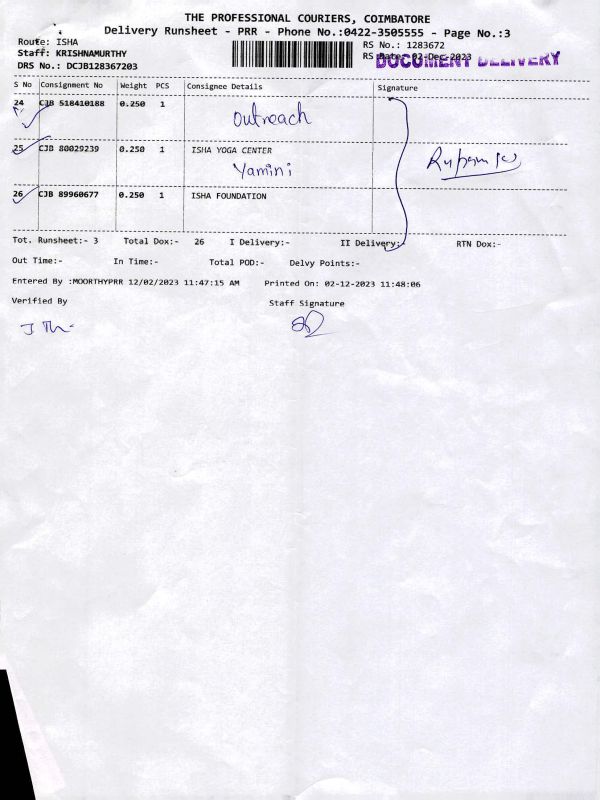 THE PROFESSIONAL COURIERS, COIMBATORE
Delivery Runsheet - PRR - Phone No.:0422-3505555 - Page No.:3
Route: ISHA
RS No.: 1283672
Staff: KRISHNAMURTHY
RS Date: 02-Dec-2023
DOCUMENT DELIVERY
DRS No.: DCJB128367203
S No Consignment No Weight PCS Consignee Details Signature
24 CJB 518410188 0.250 1
Outreach
25 CJB 80029239 0.250 1 ISHA YOGA CENTER
Yamini
26 CJB 89960677 0.250 1 ISHA FOUNDATION
Tot. Runsheet:- 3 Total Dox:- 26 I Delivery:- II Delivery:- RTN Dox:-
Out Time:- In Time:- Total POD:- Delvy Points:-
Entered By :MOORTHYPRR 12/02/2023 11:47:15 AM Printed On: 02-12-2023 11:48:06
Verified By Staff Signature